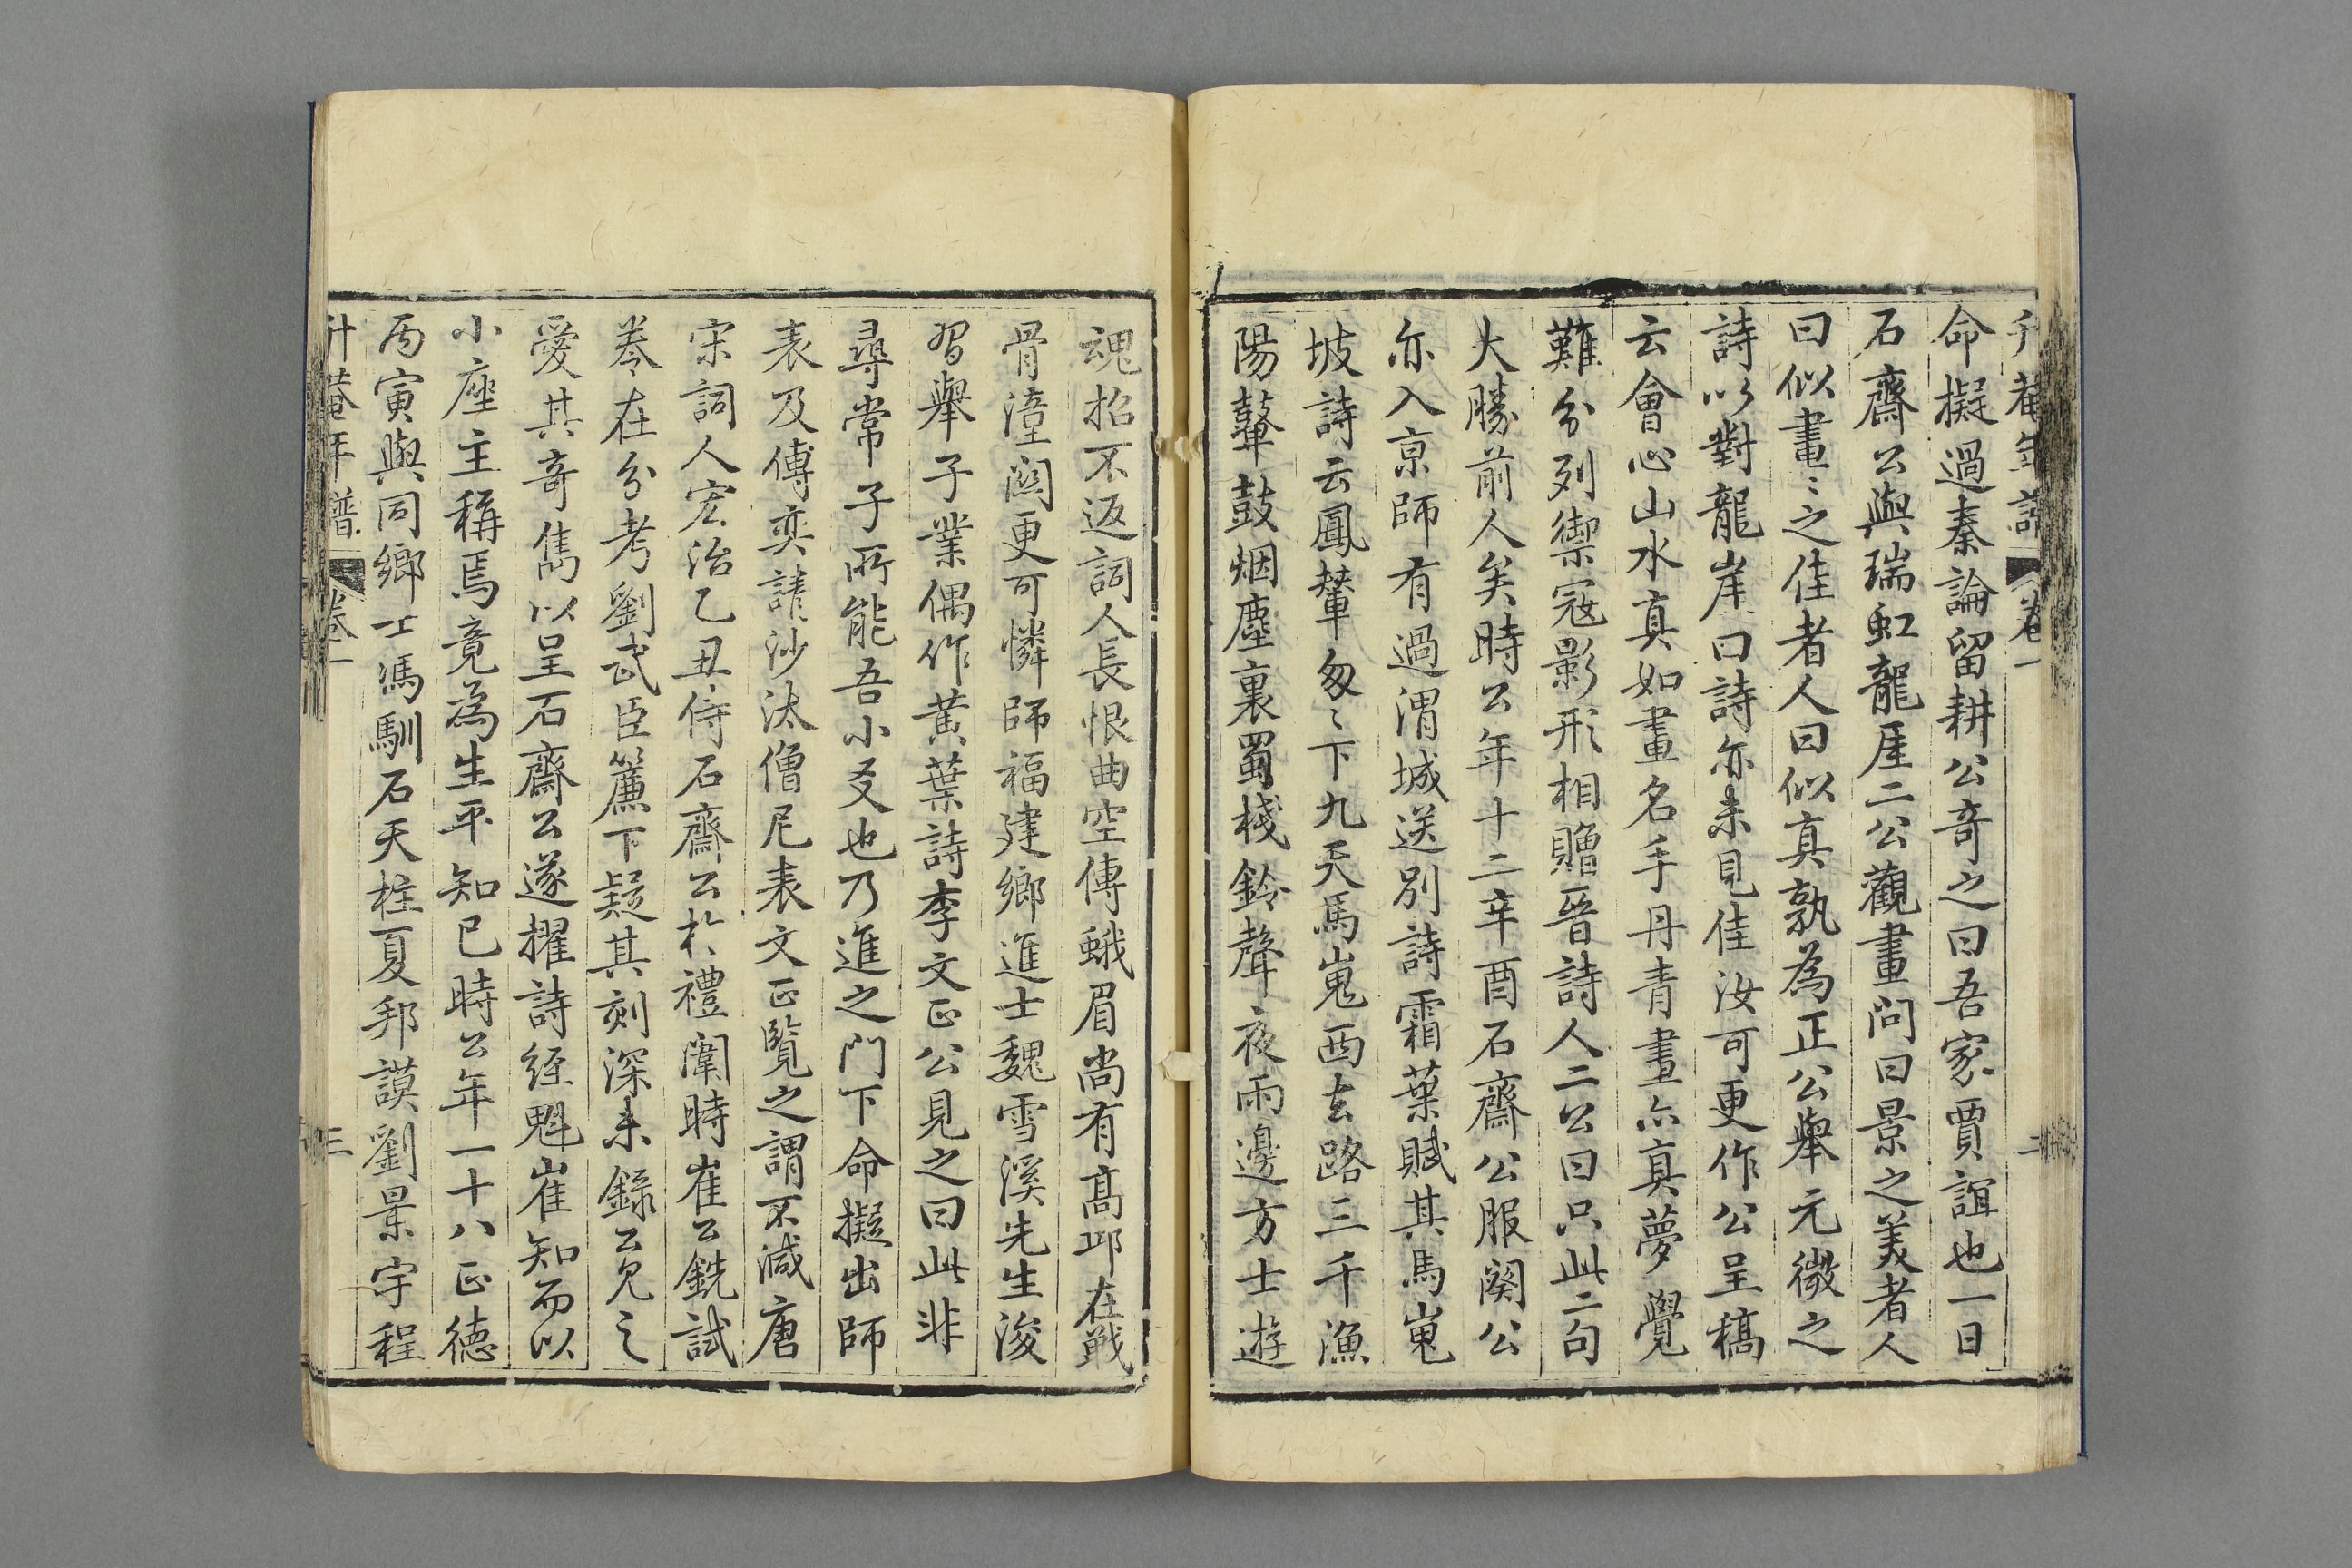 升菴年譜 卷一 二
命擬過秦論留耕公奇之曰吾家賈誼也一日
石齋公與瑞虹龍厓二公觀畫問曰景之美者人
曰似畫〻之佳者人曰似真孰為正公舉元微之
詩以對龍崖曰詩亦未見佳汝可更作公呈稿
云會心山水真如畫名手丹青畫亦真夢覺
難分列禦寇影形相贈晉詩人二公曰只此二句
大勝前人矣時公年十二辛酉石齋公服闋公
亦入京師有過渭城送別詩霜葉賦其馬嵬
坡詩云鳳輦匆〻下九天馬嵬西去路三千漁
陽鼙鼓烟塵裏蜀棧鈴聲夜雨邊方士遊
魂招不返詞人長恨曲空傳蛾眉尚有高邱在戰
骨潼關更可憐師福建鄉進士魏雪溪先生浚
習舉子業偶作黃葉詩李文正公見之曰此非
尋常子所能吾小友也乃進之門下命擬出師
表及傅奕請沙汰僧尼表文正覽之謂不減唐
宋詞人宏治乙丑侍石齋公於禮闈時崔公銑試
卷在分考劉武臣簾下疑其刻深未錄公見之
愛其奇雋以呈石齋公遂擢詩經魁崔知而以
小座主稱焉竟為生平知己時公年一十八正德
丙寅與同鄉士馮馴石天柱夏邦謨劉景宇程
升菴年譜 卷一 三